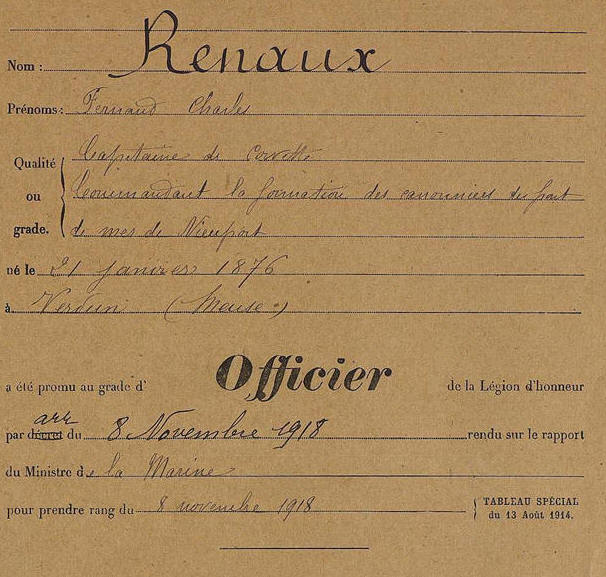 Nom : Renaux
Prénoms : Fernand Charles
Qualité ou grade. Capitaine de Corvette
Commandant la formation des canonniers du front
de mer de Nieuport
né le 21 janvier 1876
à Verdun (Meuse)
a été promu au grade d' Officier de la Légion d'honneur
par décret arr du 8 Novembre 1918 rendu sur le rapport
du Ministre de la Marine
pour prendre rang du 8 novembre 1918
TABLEAU SPÉCIAL
du 13 Août 1914.